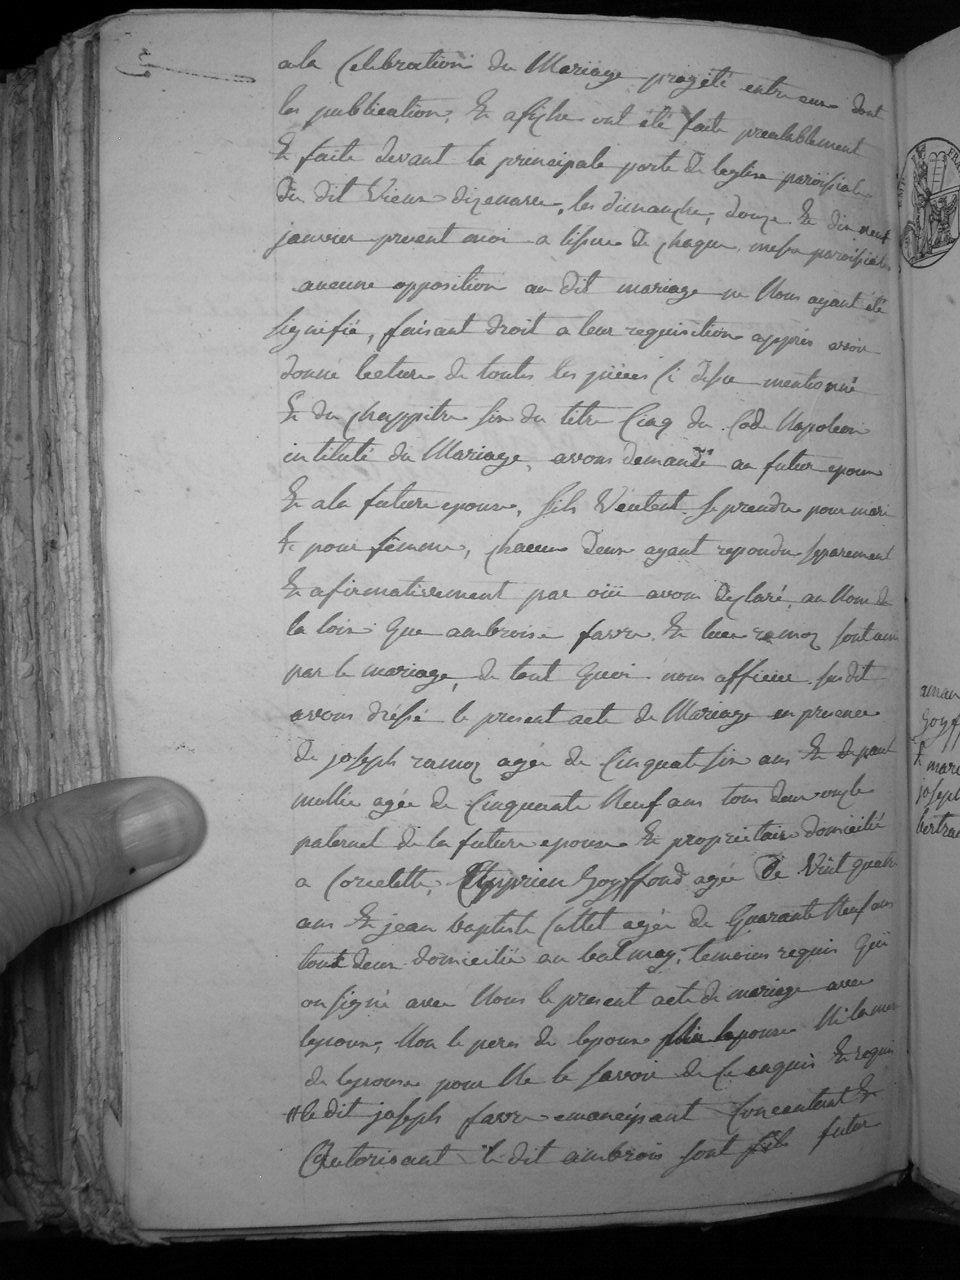 a la Celebration du Mariage progété entre eux dont
les publication, Et afiche ont été faite prealablement
Et faite devant la principale porte de leglise paroisiale
du dit Vieux dizenave, les dimanche, douze Et dix neuf
janvier present moi a lissue de chaque messe paroisiales
aucune opposition au dit mariage ne Nous ayant été
Signifié, faisant droit a leur requisition appres avoir
donné lecture de toutes les pièces Ci desu mentionné
Et du chappitre six du titre Cinq du Code Napoleon
intitulé du Mariage, avons demandé au futur epoux
Et a la future epouse, Sils Veulent Se prendre pour mari
Et pour femme, chacun deux ayant repondu Separement
Et afirmativement par oüi avons declaré, au Nom de
la loix que ambroise favre Et luce ramoz sont unis
par le mariage, de tout Quoi nous officier susdit
avons dréssé le present acte de Mariage en presence
de joseph ramoz agée de Cinquate six ans Et de paul
mullie agée de Cinquante Neuf ans tous deux oncle
paternel de la future epouse Et propriétaire domicilié
a Corcelette, Cyprien Goyffond agée de Vint quatre
ans Et jean baptiste Cattet agée de Quarante Neuf ans
tout deux domicilié au balmay, temoins requis Qui
on signé avec Nous le present acte de mariage avec
lepoux, Non le peres de lepoux Ni la mere
de lepouse pour Ne le savoir de ce enquis Et requis
# le dit joseph favre emancipant Concentant Et
Autorisant le dit ambrois sont fils futur
aman
Goyf
& mari
joseph
bertra